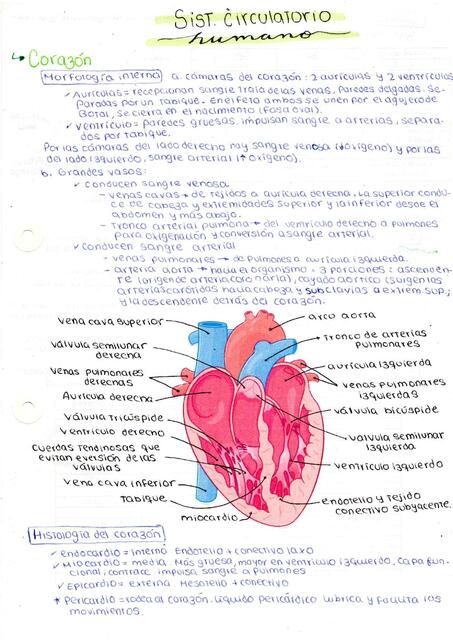 SIST. CIRCULATORIO
humano
Corazón
Morfología interna a. cámaras del corazón: 2 aurículas y 2 ventrículos
✓ Aurículas = recepcionan sangre traía de las venas, Paredes delgadas. Se-
Paradas por un tabique. En el feto ambos se unen por el agujero de
Botal, se cierra en el nacimiento (Fosa oval).
✓ Ventrículo = paredes gruesas, impulsan sangre a arterias, separa-
dos por tabique.
Por las cámaras del lado derecho hay sangre venosa (↓oxígeno) y por las
del lado izquierdo, sangre arterial (↑ oxígeno).
b. Grandes vasos:
✓ conducen sangre venosa
- venas cavas → de tejidos a aurícula derecha. La superior condu-
ce de cabeza y extremidades superior y la inferior desde el
abdomen y más abajo.
- Tronco arterial pulmonar → del ventrículo derecho a pulmones
para oxigenación y conversión a sangre arterial.
✓ conducen sangre arterial
- venas pulmonares → de Pulmones a aurícula izquierda.
- arteria aorta → hacia el organismo = 3 porciones: ascenden-
te (origen de arteria coronaria), cayado aórtico (surgen las
arterias carótidas hacia cabeza y subclavias a extrem. sup.;
y la descendente detrás del corazón.
vena cava superior
arco aorta
válvula semilunar
derecha
Tronco de arterias
Pulmonares
venas pulmonares
derechas
aurícula izquierda
Aurícula derecha
venas pulmonares
izquierdas
válvula tricúspide
válvula bicúspide
ventrículo derecho
válvula semilunar
izquierda
cuerdas tendinosas que
evitan eversión de las
válvulas
ventrículo izquierdo
vena cava inferior
tabique
endotelio y tejido
conectivo subyacente.
miocardio
Histología del corazón
✓ endocardio = interno Endotelio + conectivo laxo
✓ Miocardio = media Más gruesa, mayor en ventrículo izquierdo. Capa fun-
cional, contrac. impulsa sangre a pulmones
✓ Epicardio = externa Mesotelio + conectivo
* Pericardio = rodea al corazón. Líquido pericárdico lubrica y facilita los
movimientos.